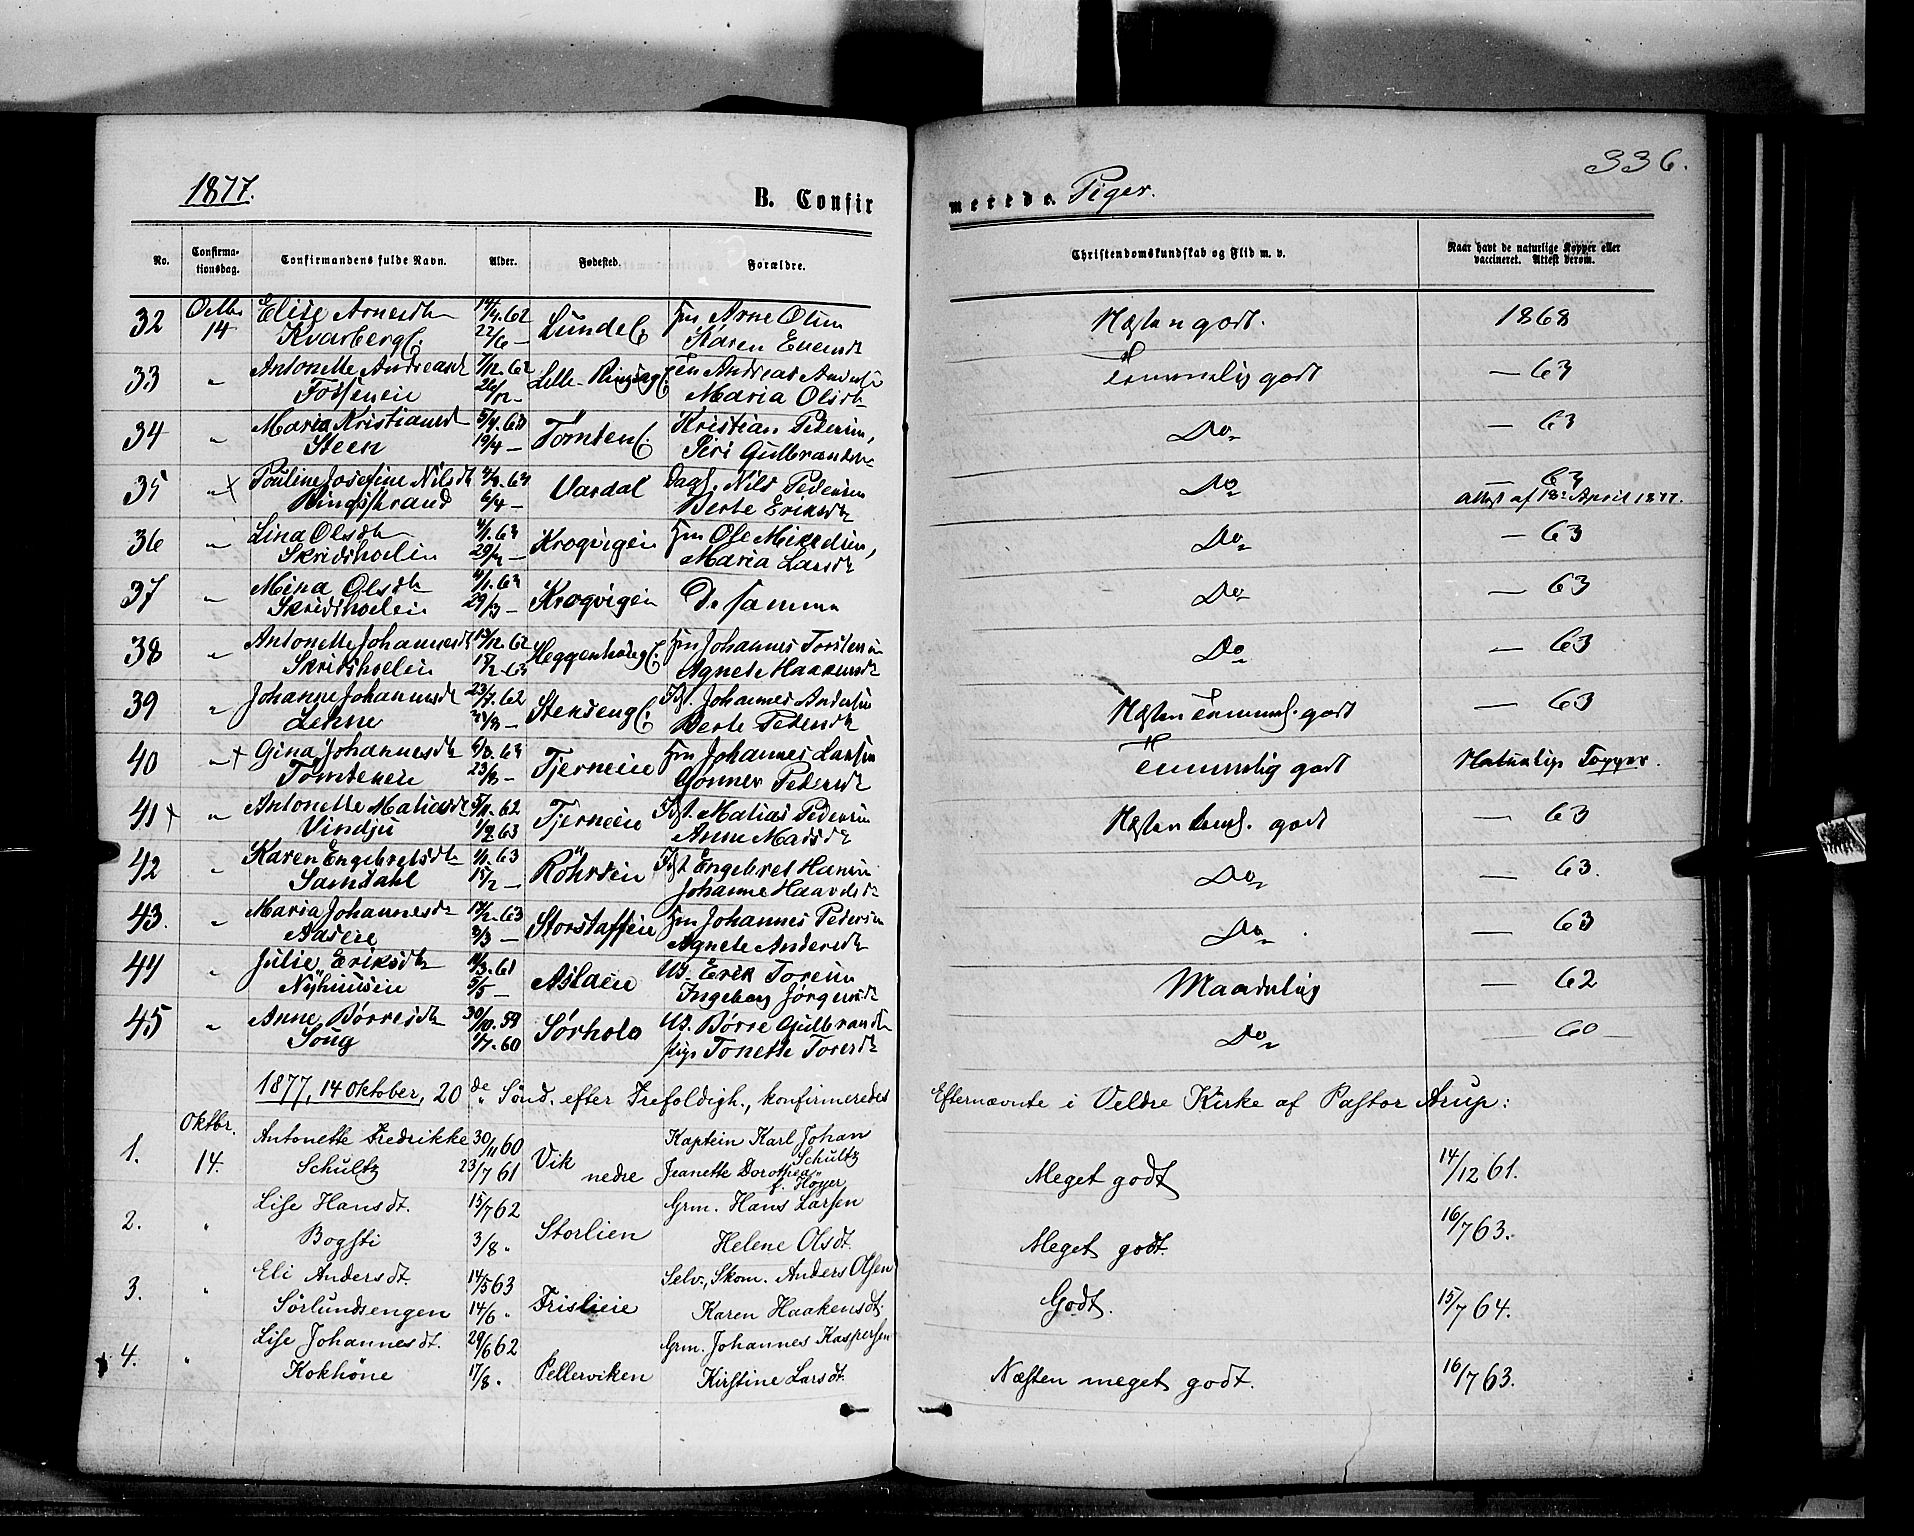 336.
1877.
B. Confirmerede Piger.
No.
Confirmationsdag.
Confirmandens fulde Navn.
Alder.
Fødested.
Forældre.
Christendomskundskab og Flid m. v.
Naar havt de naturlige Kopper eller vaccineret. Attest derom.
32 Octbr 14 Elise Arnesdtr Kvarberg 62 22/6 — Lunde Hm Arne Olsen Karen Evensdtr Næsten godt. 1868
33 " Antonette Andreasdt 7/12 62 26/12 — Lille-Ringsag Andreas Maria Olsdtr Temmelig godt — 63
34 " Maria Kristiansd Steen 5/4 63 19/4 — Tomten Kristian Pedersen, Siri Gulbrandsdtr Do — 63
35 " x Pauline Josefine Nilsdt Ringsstrand 63 6/4 — Vardal Nils Pedersen Berte Eriksdtr Do — 63 Attest af 18de April 1877.
36 " Lina Olsdtr Skridsholen 4/1 63 29/3 — Krogvigen Hm Ole Maria Larsdtr Do — 63
37 " Mina Olsdtr Skridsholen 4/1 63 29/3 — Krogvigen De samme Do — 63
38 " Antonette Johannesdt Skridsholen 62 63 Heggenhoug Hm Johannes Torstensen Agnete Haakensdtr Do — 63
39 " Johanne Johannesdt 23/7 62 Stenseng Johannes Andersen Berte Pedersdtr Næsten Temmel. godt — 63
40 " + Gina Johannesdtr Tomteneie 63 23/8 — Tjerneie Hm Johannes Larsen Gonner Pedersdtr Temmelig godt Naturlig Kopper.
41 + " Antonette Matiasdt Vindju 5/11 62 63 Tjerneie Matias Pedersen Anne Madsdtr Næsten teml. godt — 63
42 " Karen Engebretsdtr Samdahl 63 15/2 — Röhrseie Engebret Hansen Johanne Haavelsdtr Do — 63.
43. " Maria Johannesdtr Aaseie 63 3/3 — Storstaffeie Hm Johannes Pedersen Agnete Andersdtr Do — 63
44 " Julie Eriksdtr Nyhuuseie 61 5/5 — Aslaeie Erik Toresen Ingeborg Jørgensdtr Maadelig — 62
45 " Anne Børresdtr Soug 30/10 59 60 Sørholo Børre Gulbrands Toneth Toresdtr Do — 60
1877, 14 Oktober, 20de Sönd. efter Trefoldigh., konfirmeredes Efternævnte i Veldre Kirke af Pastor Arup:
1. Oktbr. 14. Antonette Fredrikke Schultz 30/11 60 23/7 61 Vik nedre Kaptein Karl Johan Schultz Jeanette Dorothea f. Høyer Meget godt 14/12 61.
2. " Lise Hansdt. Bogsti 15/7 62 3/8 " Storlien Grm. Hans Larsen Helene Olsdt. Meget godt. 16/7 63.
3. " Eli Andersdt. Sörlundsengen 14/5 63 14/6 " Frislieie Selv., Skom. Anders Olsen Karen Haakensdt. Godt. 15/7 64.
4. " Lise Johannesdt. Kokhöne 29/6 62 17/8 " Pellerviken Grm. Johannes Kaspersen Kirstine Larsdt. Næsten meget godt. 16/7 63.